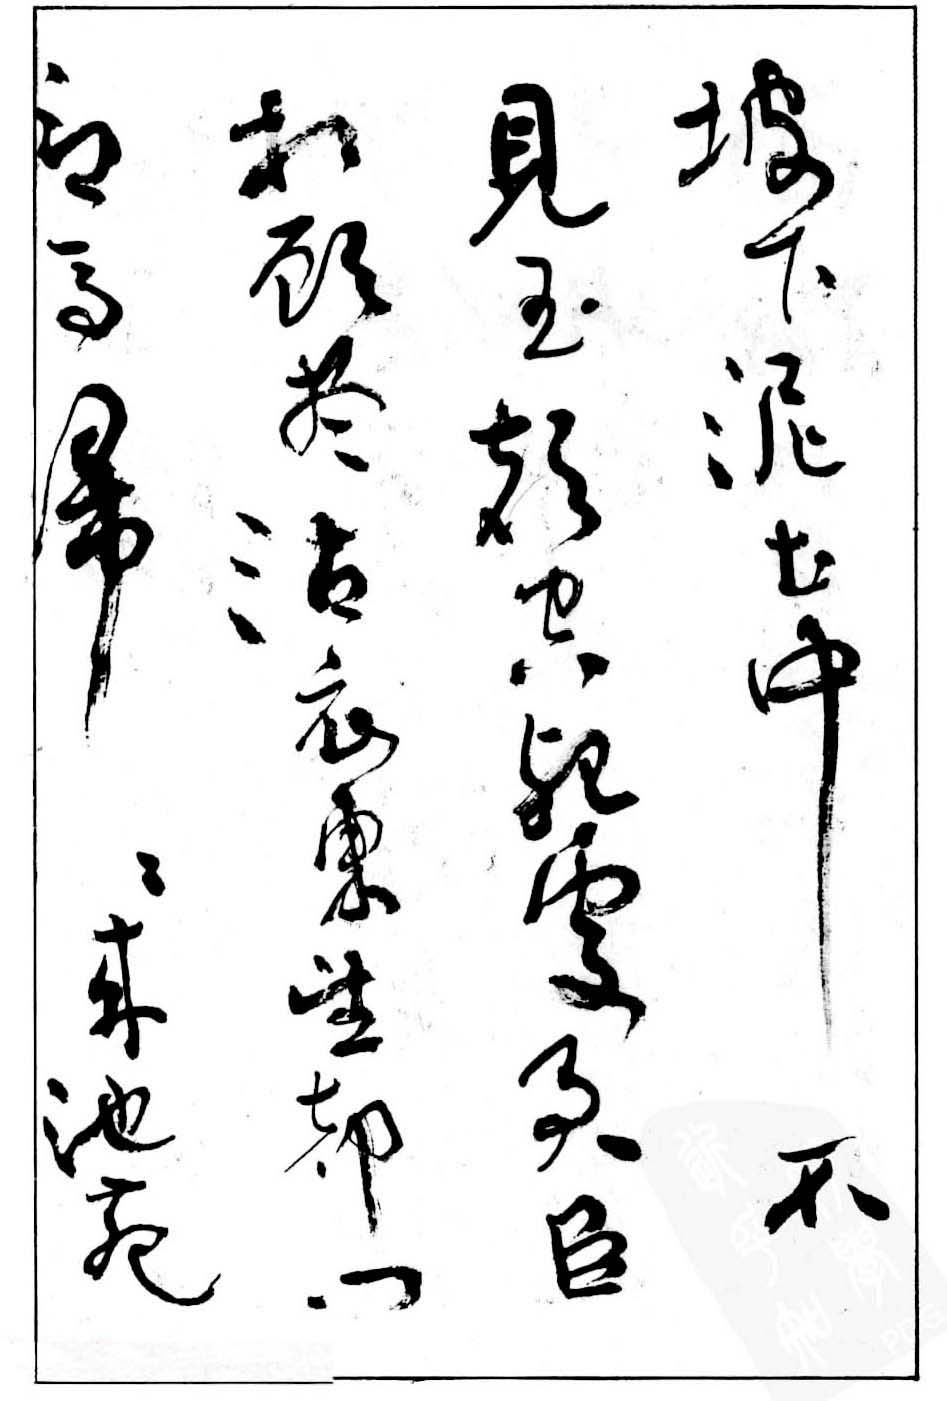 坡下泥土中 不
見玉顏空死處君臣
相顧盡沾衣東望都門
信馬歸 〻來池苑